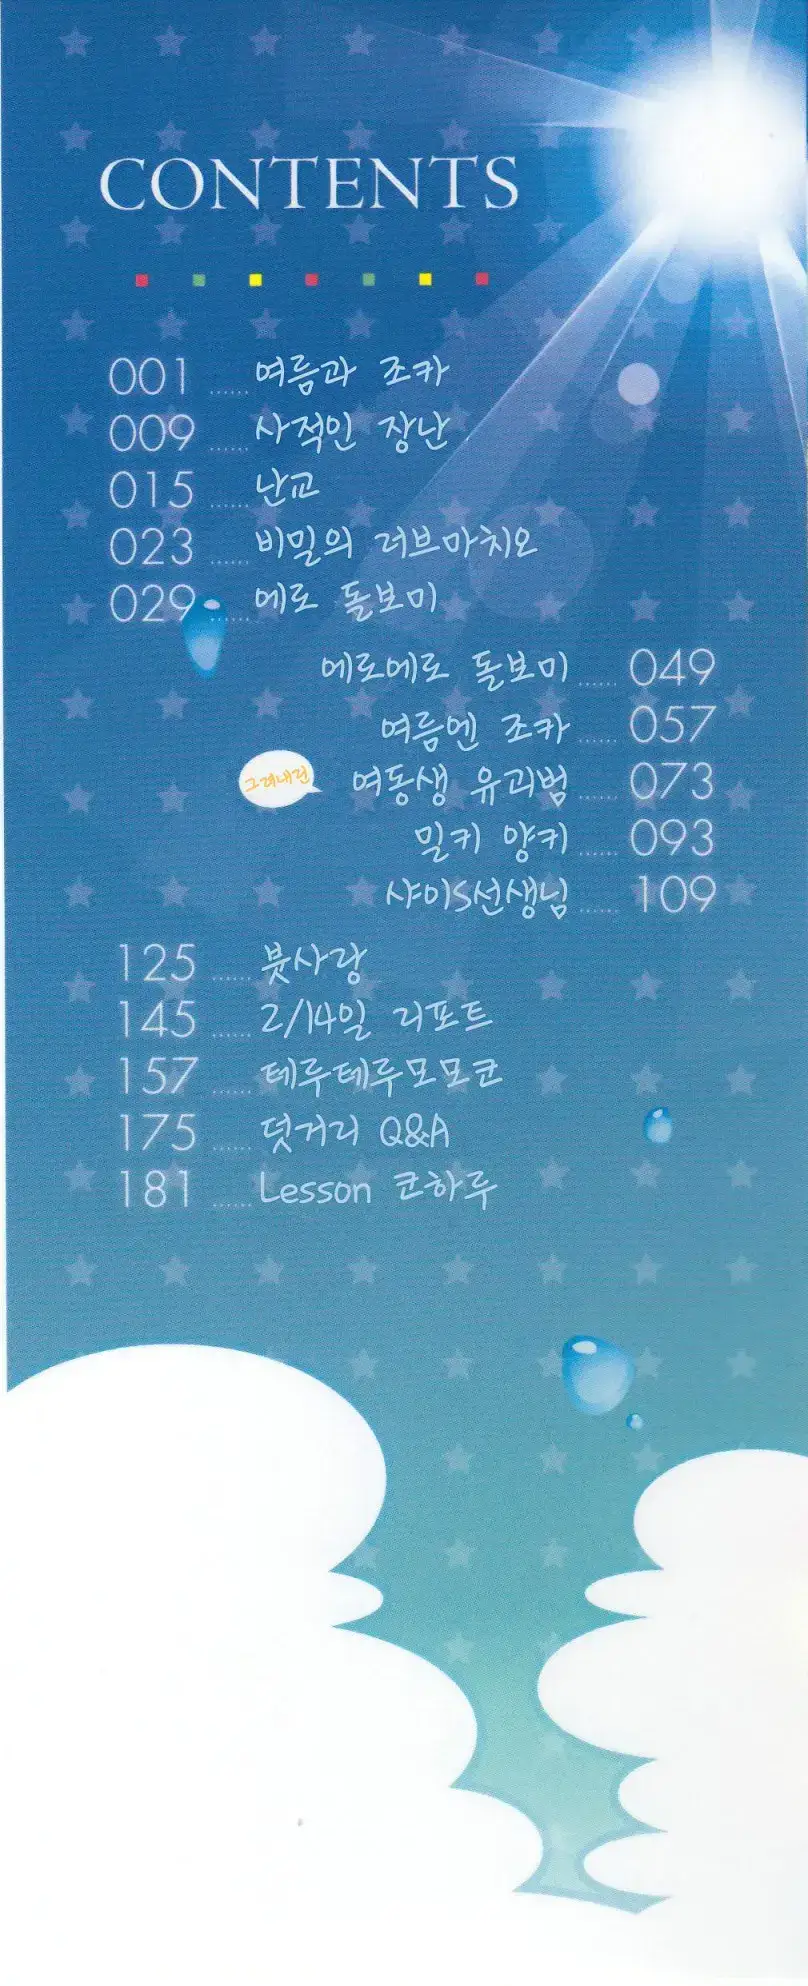 CONTENTS
001 ...... 여름과 조카
009 ...... 사적인 장난
015 ...... 난교
023 ...... 비밀의 러브마치오
029 ...... 에로 돌보미
에로에로 돌보미 ...... 049
여름엔 조카 ...... 057
그려내린
여동생 유괴범 ...... 073
밀키 양키 ...... 093
샤이S선생님 ...... 109
125 ...... 붓사랑
145 ...... 2/14일 리포트
157 ...... 테루테루모모코
175 ...... 덧거리 Q&A
181 ...... Lesson 코하루